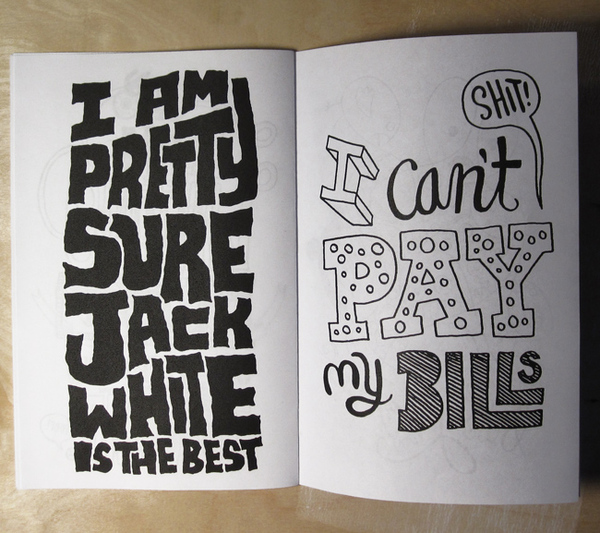 I AM
PRETTY
SURE
JACK
WHITE
IS THE BEST
SHIT!
I can't
PAY
my BILLS